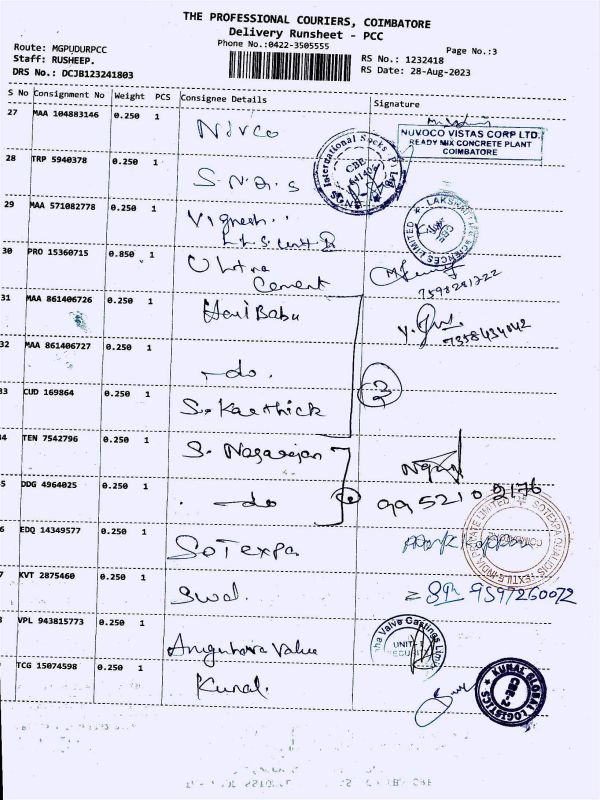 THE PROFESSIONAL COURIERS, COIMBATORE
Delivery Runsheet - PCC
Phone No.:0422-3505555
Page No.:3
Route: MGPUDURPCC
Staff: RUSHEEP.
DRS No.: DCJB123241803
RS No.: 1232418
RS Date: 28-Aug-2023
S No Consignment No Weight PCS Consignee Details Signature
27 MAA 104883146 0.250 1 Nivco
NUVOCO VISTAS CORP LTD.
READY MIX CONCRETE PLANT
COIMBATORE
28 TRP 5940378 0.250 1 S.N.Q.S
International Socks
CBE
29 MAA 571082778 0.250 1 Vignesh
30 PRO 15360715 0.850 1 Ultra
Cement
7598281722
31 MAA 861406726 0.250 1 Hari Babu
7358434042
32 MAA 861406727 0.250 1 do.
3
33 CUD 169864 0.250 1 S. Karthick
34 TEN 7542796 0.250 1 S. Nagarajan
35 DDG 4964025 0.250 1 do
99521 02176
EDQ 14349577 0.250 1 SoTexpa
KVT 2875460 0.250 1 Swal.
9597260072
VPL 943815773 0.250 1 Value
Valve Castings
UNIT
TCG 15074598 0.250 1 Kunal.
KUNAL GLOBAL LOGISTICS
CBE-2